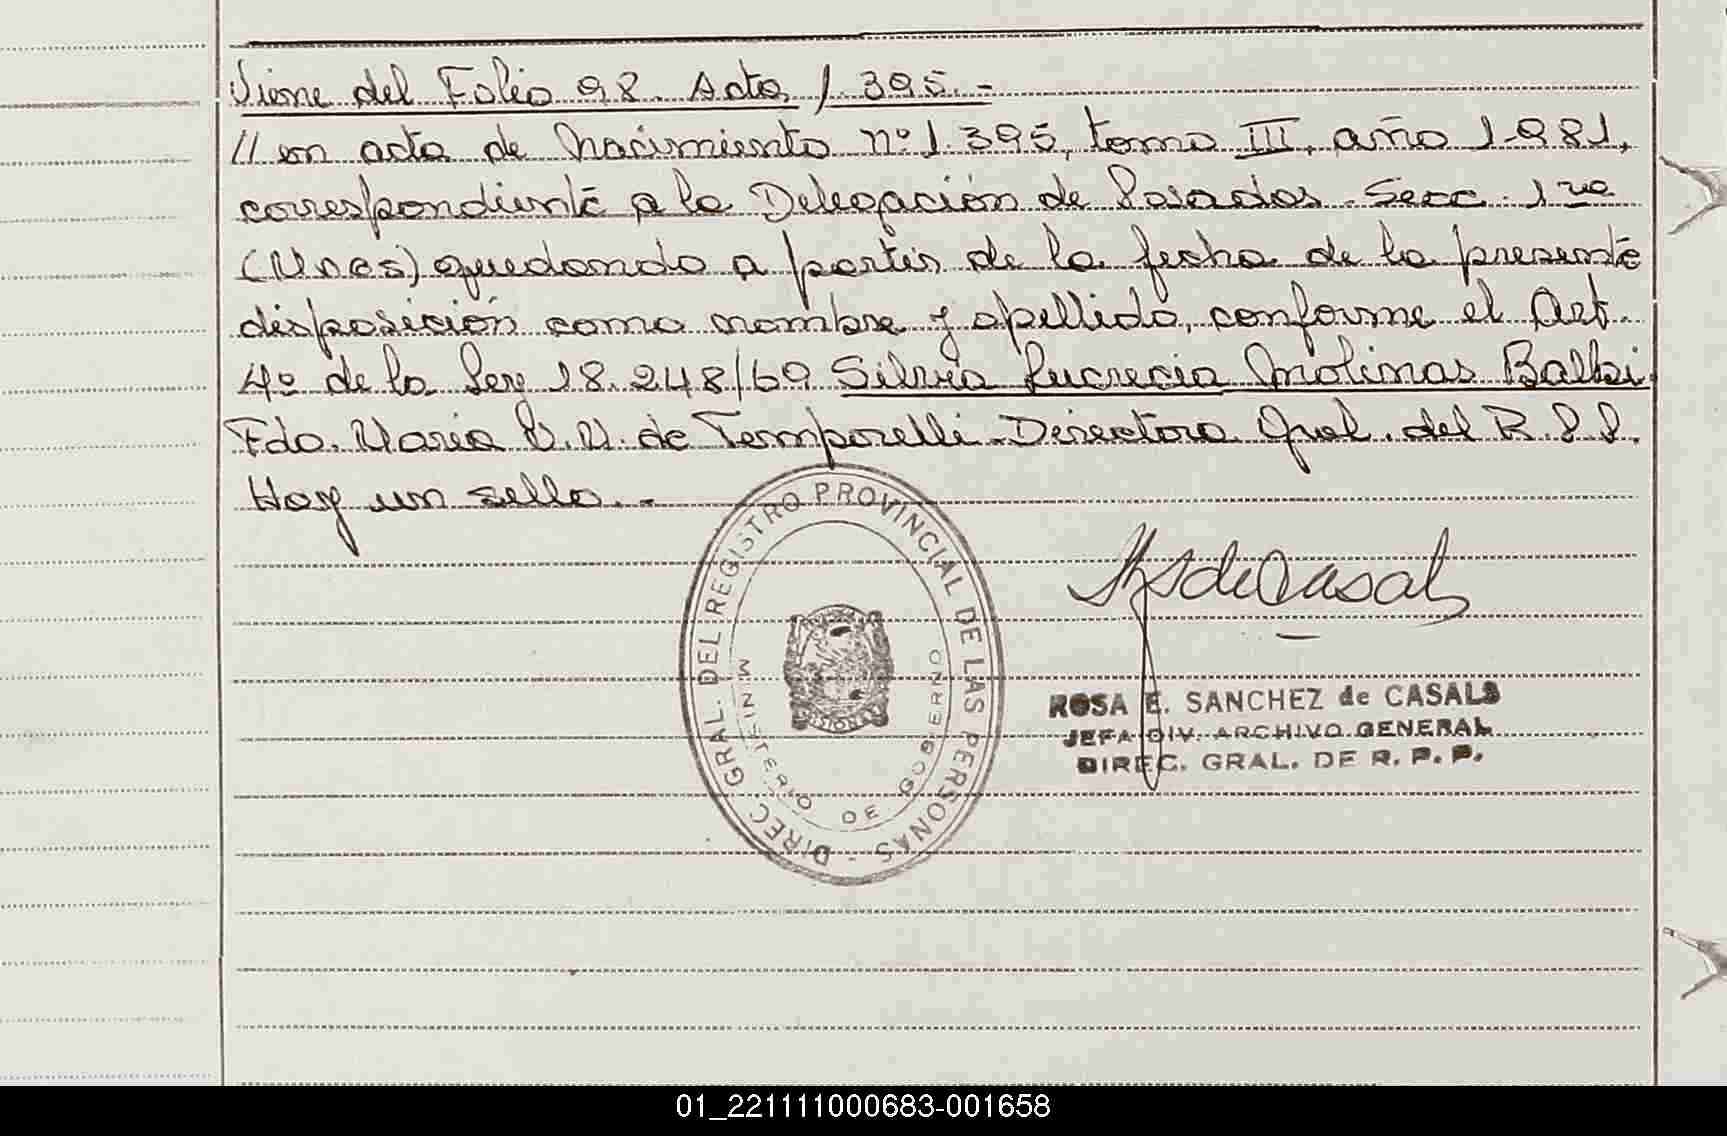 Viene del Folio 98. Acta 1.395.-
// en acta de Nacimiento nº 1.395, tomo III, año 1.981,
correspondiente a la Delegación de Posadas - Secc. 1ra
(Mnes) quedando a partir de la fecha de la presente
disposición como nombre y apellido, conforme el Art.
4º de la Ley 18.248/69 Silvia Lucrecia Molinas Balbi.
Fdo. Maria V. M. de Temporelli - Directora Gral. del R.P.P.
Hay un sello.-
DIREC. GRAL. DEL REGISTRO PROVINCIAL DE LAS PERSONAS -
MINISTERIO DE GOBIERNO
MISIONES
ROSA E. SANCHEZ de CASALS
JEFA DIV. ARCHIVO GENERAL
DIREC. GRAL. DE R. P. P.
01_221111000683-001658